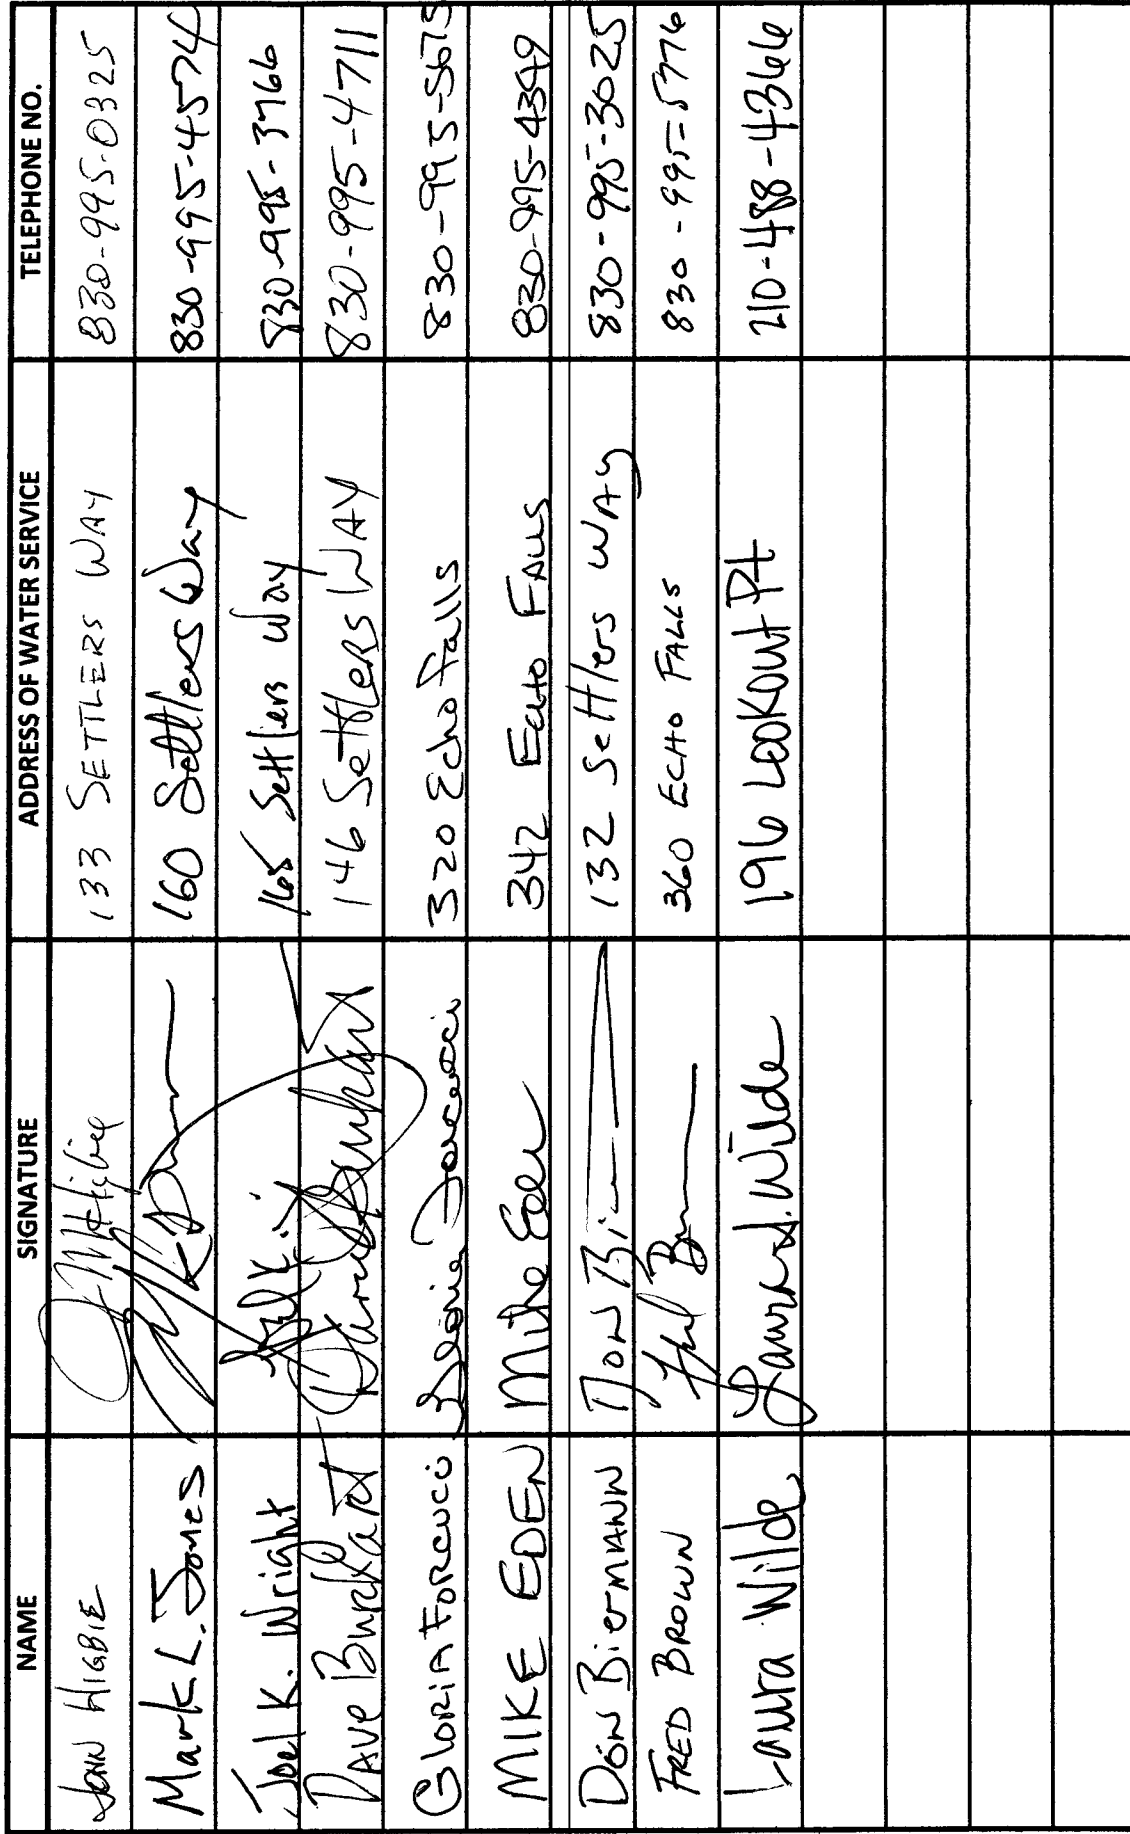 NAME SIGNATURE ADDRESS OF WATER SERVICE TELEPHONE NO.
JOHN HIGBIE 133 SETTLERS WAY 830-995-0325
Mark L. Jones 160 Settlers Way 830-995-4574
Joel K. Wright 165 Settlers Way 830-995-3766
DAVE BURKART Dave Burkart 146 SettleRs WAY 830-995-4711
GLORIA FORCUCCI Gloria Forcucci 320 Echo Falls 830-995-5675
MIKE EDEN Mike Eden 342 ECHO FALLS 830-995-4349
DON BierMANN DON Bi 132 Settlers WAY 830-995-3025
FRED BROWN Fred B 360 ECHO FALLS 830-995-5776
Laura Wilde Laura J. Wilde 196 Lookout Pt 210-488-4366